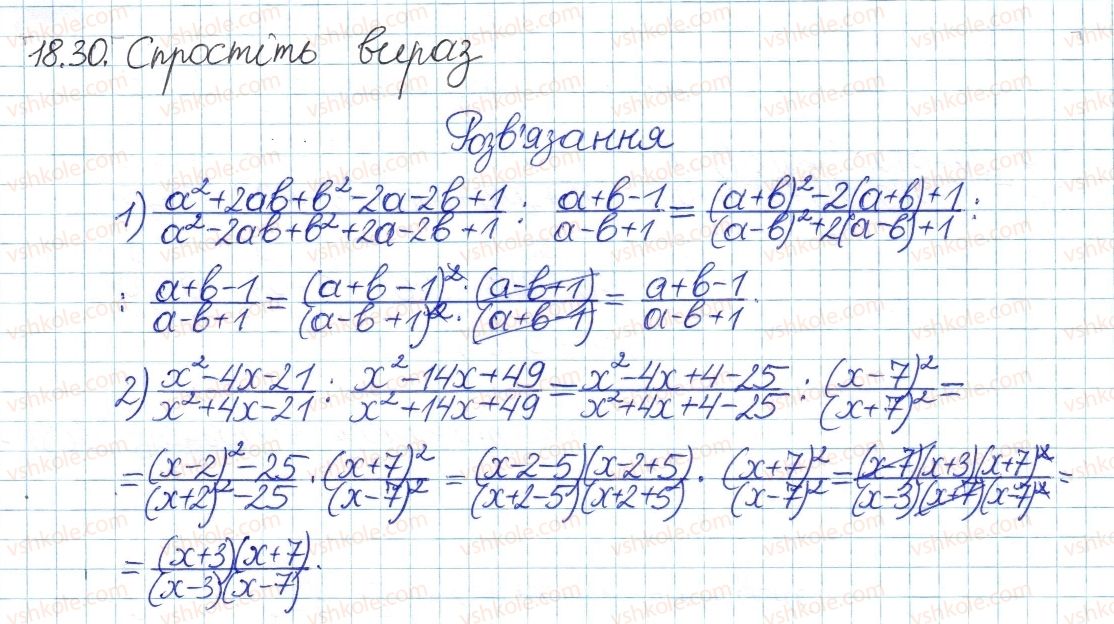 18.30. Спростіть вираз
Розв'язання
1) (a²+2ab+b²-2a-2b+1)/(a²-2ab+b²+2a-2b+1) : (a+b-1)/(a-b+1) = ((a+b)²-2(a+b)+1)/((a-b)²+2(a-b)+1) :
: (a+b-1)/(a-b+1) = ((a+b-1)²·(a-b+1))/((a-b+1)²·(a+b-1)) = (a+b-1)/(a-b+1).
2) (x²-4x-21)/(x²+4x-21) : (x²-14x+49)/(x²+14x+49) = (x²-4x+4-25)/(x²+4x+4-25) : (x-7)²/(x+7)² =
= ((x-2)²-25)/((x+2)²-25) · (x+7)²/(x-7)² = ((x-2-5)(x-2+5))/((x+2-5)(x+2+5)) · (x+7)²/(x-7)² = ((x-7)(x+3)(x+7)²)/((x-3)(x+7)(x-7)²) =
= ((x+3)(x+7))/((x-3)(x-7)).